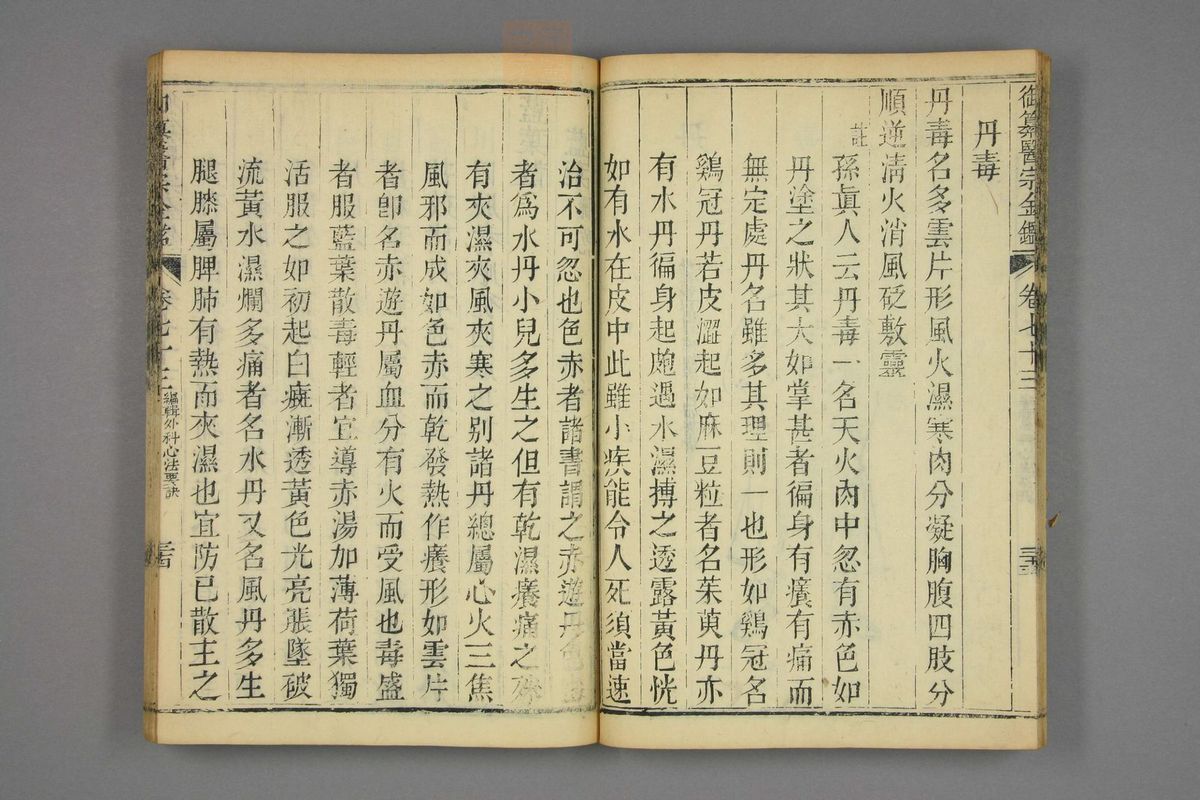 御纂醫宗金鑑 卷七十三
丹毒
丹毒名多雲片形風火濕寒肉分凝胸腹四肢分
順逆清火消風砭敷靈
註
孫眞人云丹毒一名天火肉中忽有赤色如
丹塗之狀其大如掌甚者徧身有癢有痛而
無定處丹名雖多其理則一也形如鷄冠名
鷄冠丹若皮澀起如麻豆粒者名茱萸丹亦
有水丹徧身起皰遇水濕搏之透露黃色恍
如有水在皮中此雖小疾能令人死須當速
治不可忽也色赤者諸書謂之赤遊丹色
者爲水丹小兒多生之但有乾濕癢痛之殊
有夾濕夾風夾寒之别諸丹總屬心火三焦
風邪而成如色赤而乾發熱作癢形如雲片
者卽名赤遊丹屬血分有火而受風也毒盛
者服藍葉散毒輕者宜導赤湯加薄荷葉獨
活服之如初起白㿔漸透黃色光亮脹墜破
流黃水濕爛多痛者名水丹又名風丹多生
腿膝屬脾肺有熱而夾濕也宜防已散主之
卷七十三 編輯外科心法要訣